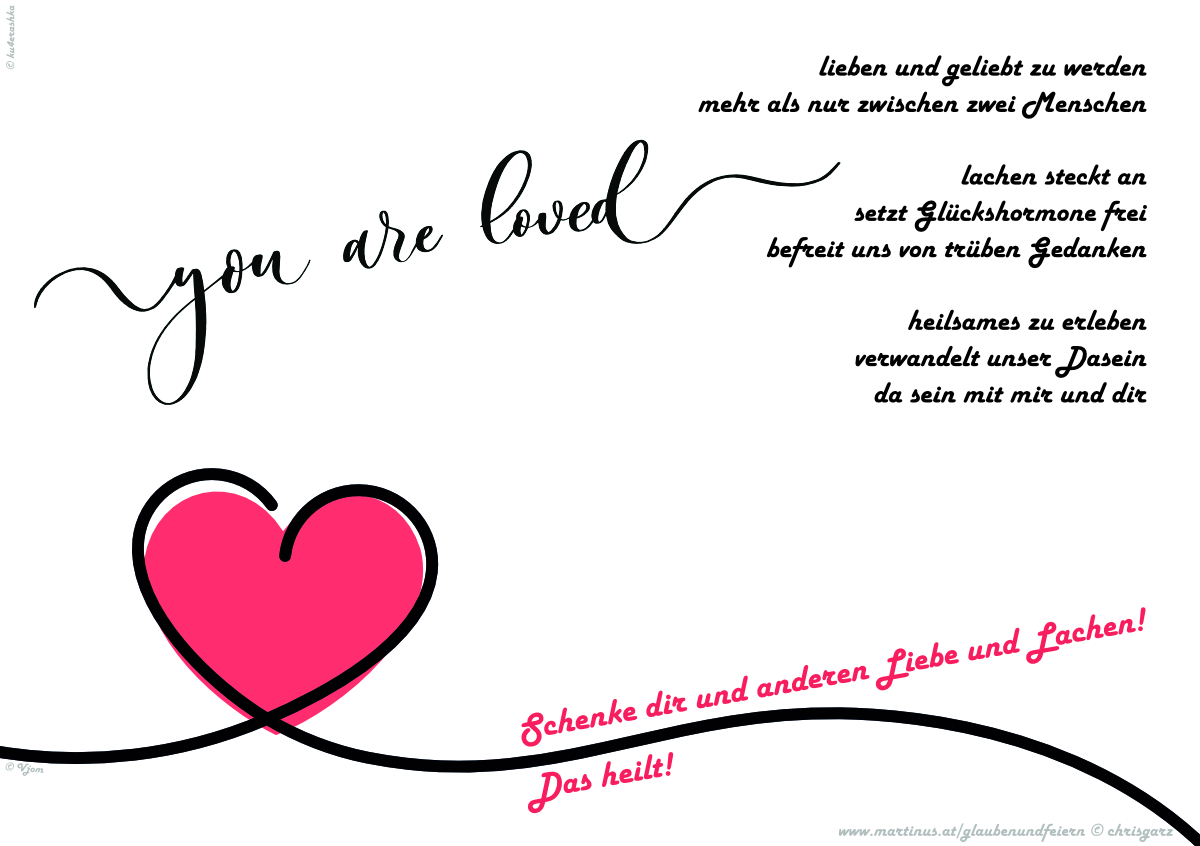 © ku4erashka
lieben und geliebt zu werden
mehr als nur zwischen zwei Menschen
you are loved
lachen steckt an
setzt Glückshormone frei
befreit uns von trüben Gedanken
heilsames zu erleben
verwandelt unser Dasein
da sein mit mir und dir
Schenke dir und anderen Liebe und Lachen!
Das heilt!
© Vjom
www.martinus.at/glaubenundfeiern © chrisgarz